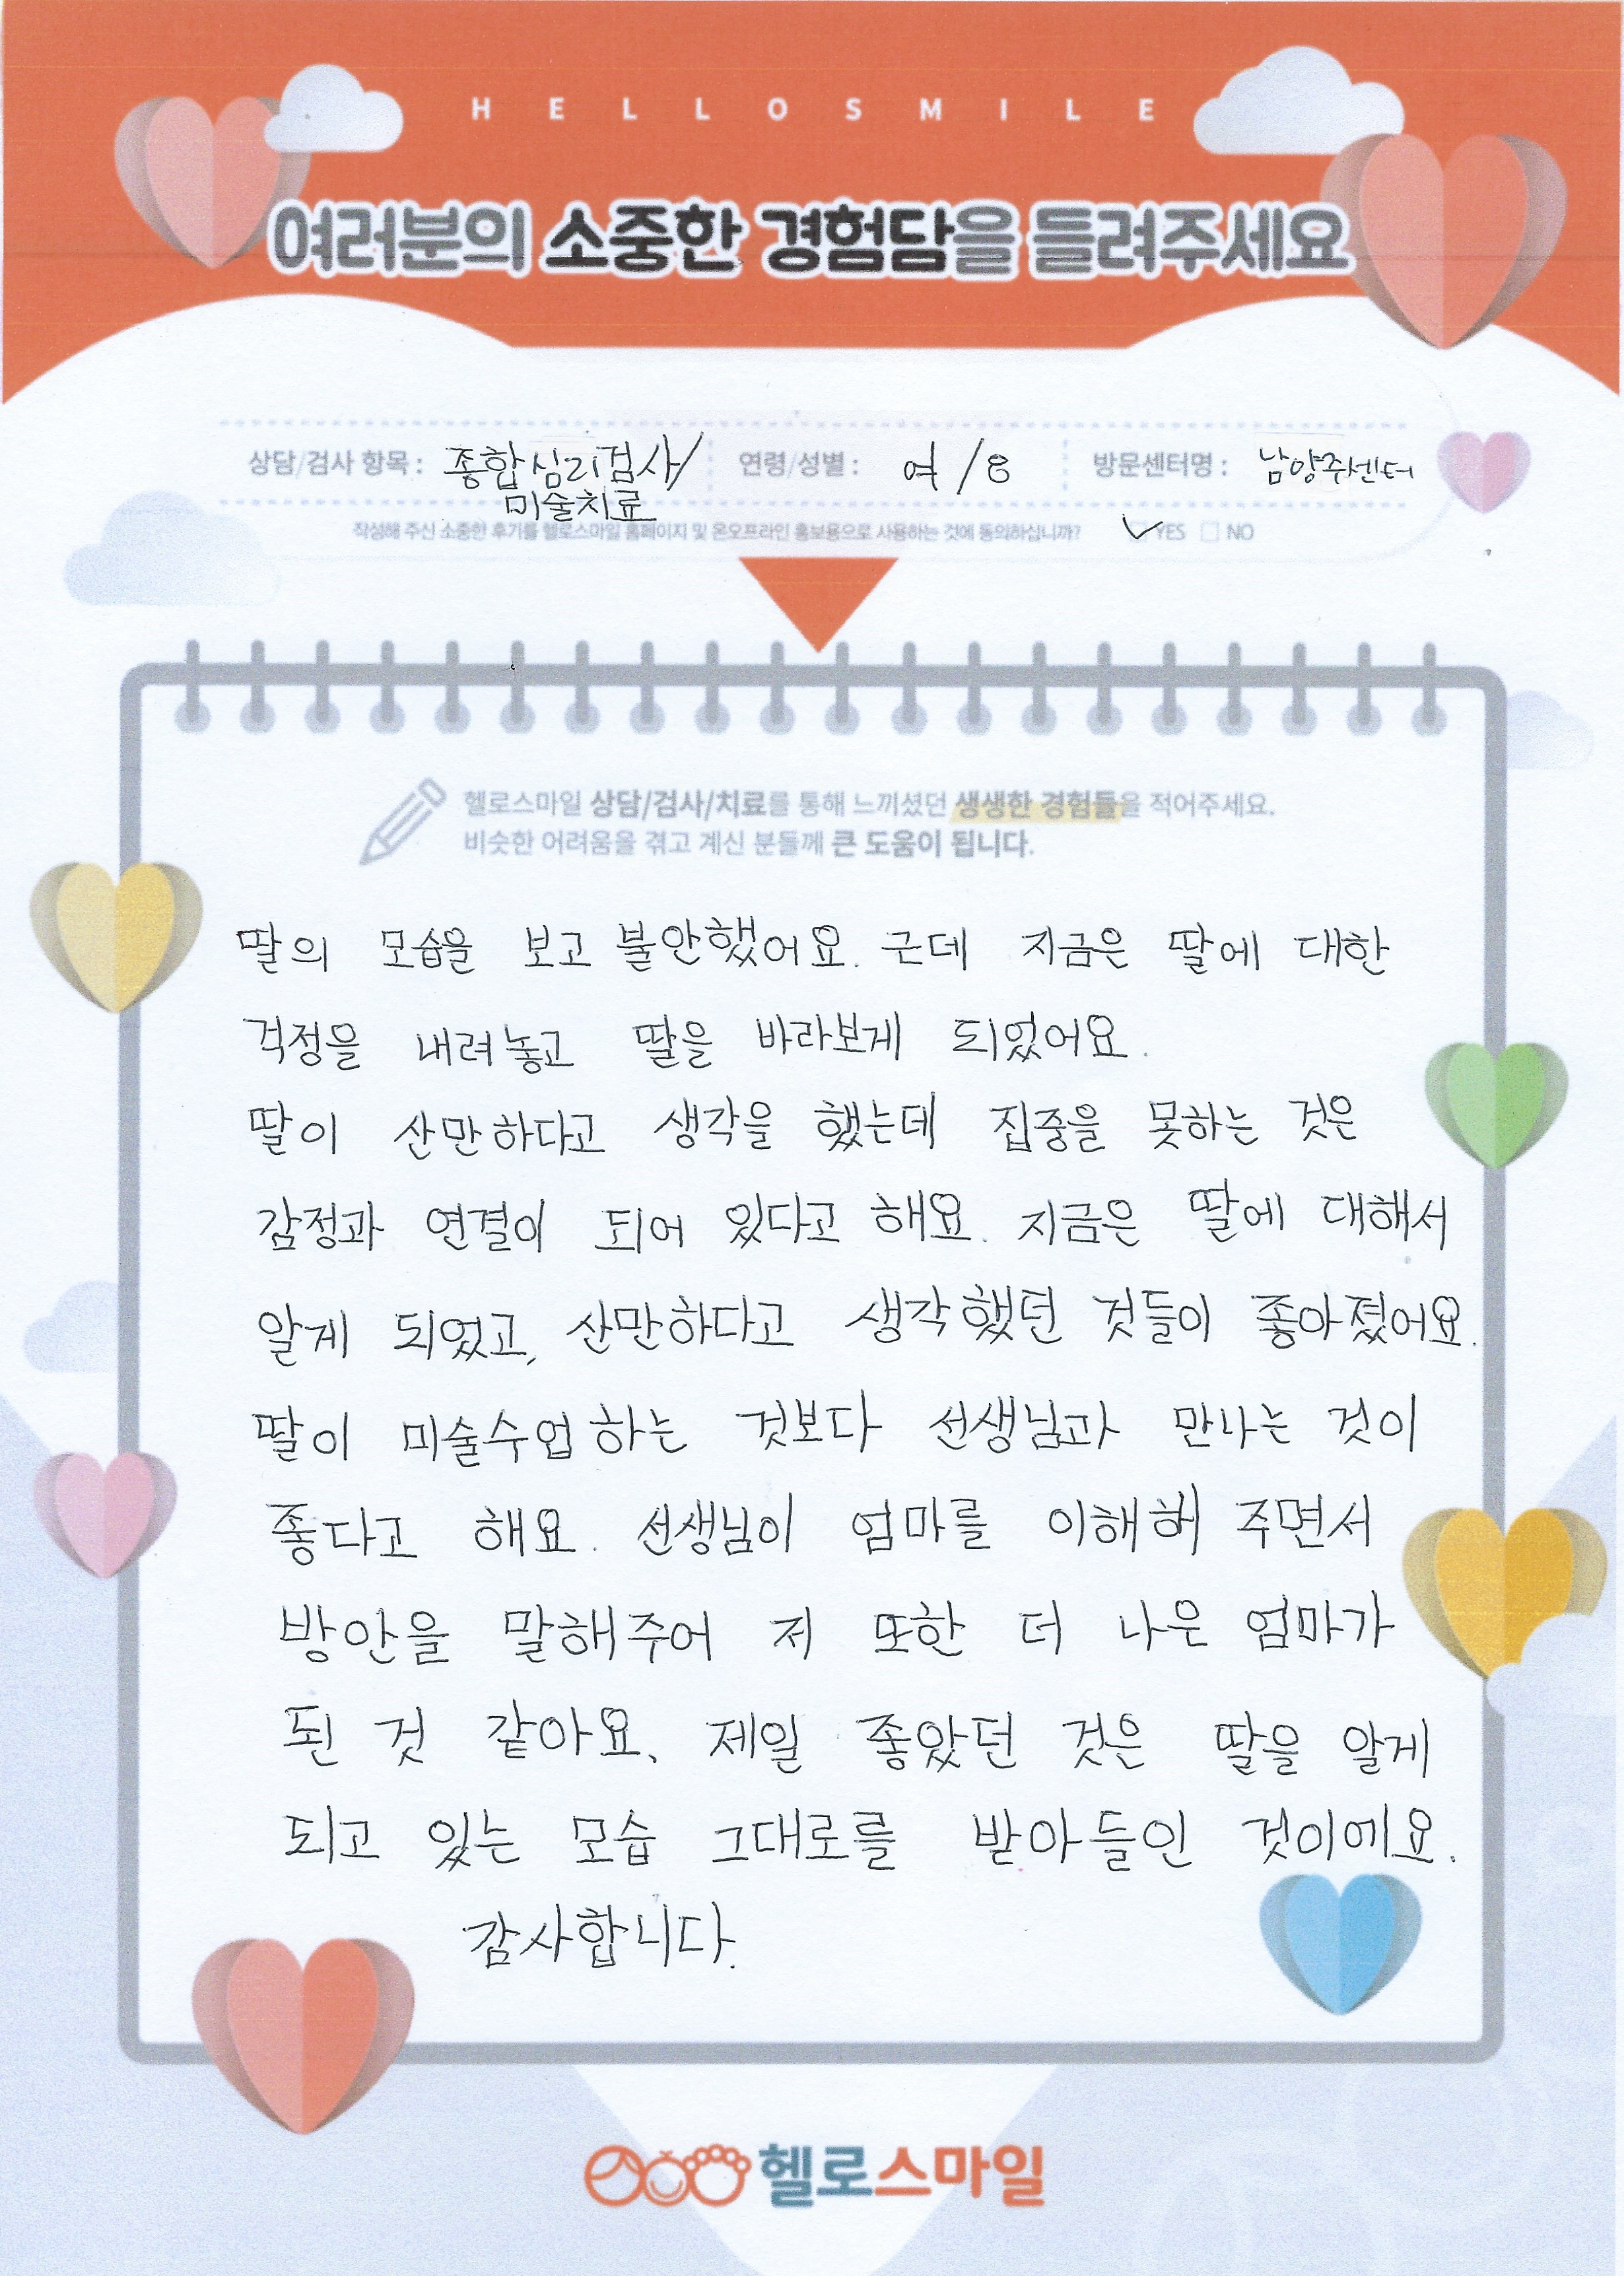 HELLOSMILE
여러분의 소중한 경험담을 들려주세요
상담/검사 항목 : 종합심리검사/ 연령/성별 : 여 / 8 방문센터명 : 남양주센터
미술치료
작성해 주신 소중한 후기를 헬로스마일 홈페이지 및 온오프라인 홍보용으로 사용하는 것에 동의하십니까? ✓ YES □ NO
헬로스마일 상담/검사/치료를 통해 느끼셨던 생생한 경험들을 적어주세요.
비슷한 어려움을 겪고 계신 분들께 큰 도움이 됩니다.
딸의 모습을 보고 불안했어요. 근데 지금은 딸에 대한
걱정을 내려놓고 딸을 바라보게 되었어요.
딸이 산만하다고 생각을 했는데 집중을 못하는 것은
감정과 연결이 되어 있다고 해요. 지금은 딸에 대해서
알게 되었고, 산만하다고 생각했던 것들이 좋아졌어요.
딸이 미술수업하는 것보다 선생님과 만나는 것이
좋다고 해요. 선생님이 엄마를 이해해 주면서
방안을 말해주어 저 또한 더 나은 엄마가
된 것 같아요. 제일 좋았던 것은 딸을 알게
되고 있는 모습 그대로를 받아들인 것이에요.
감사합니다.
헬로스마일